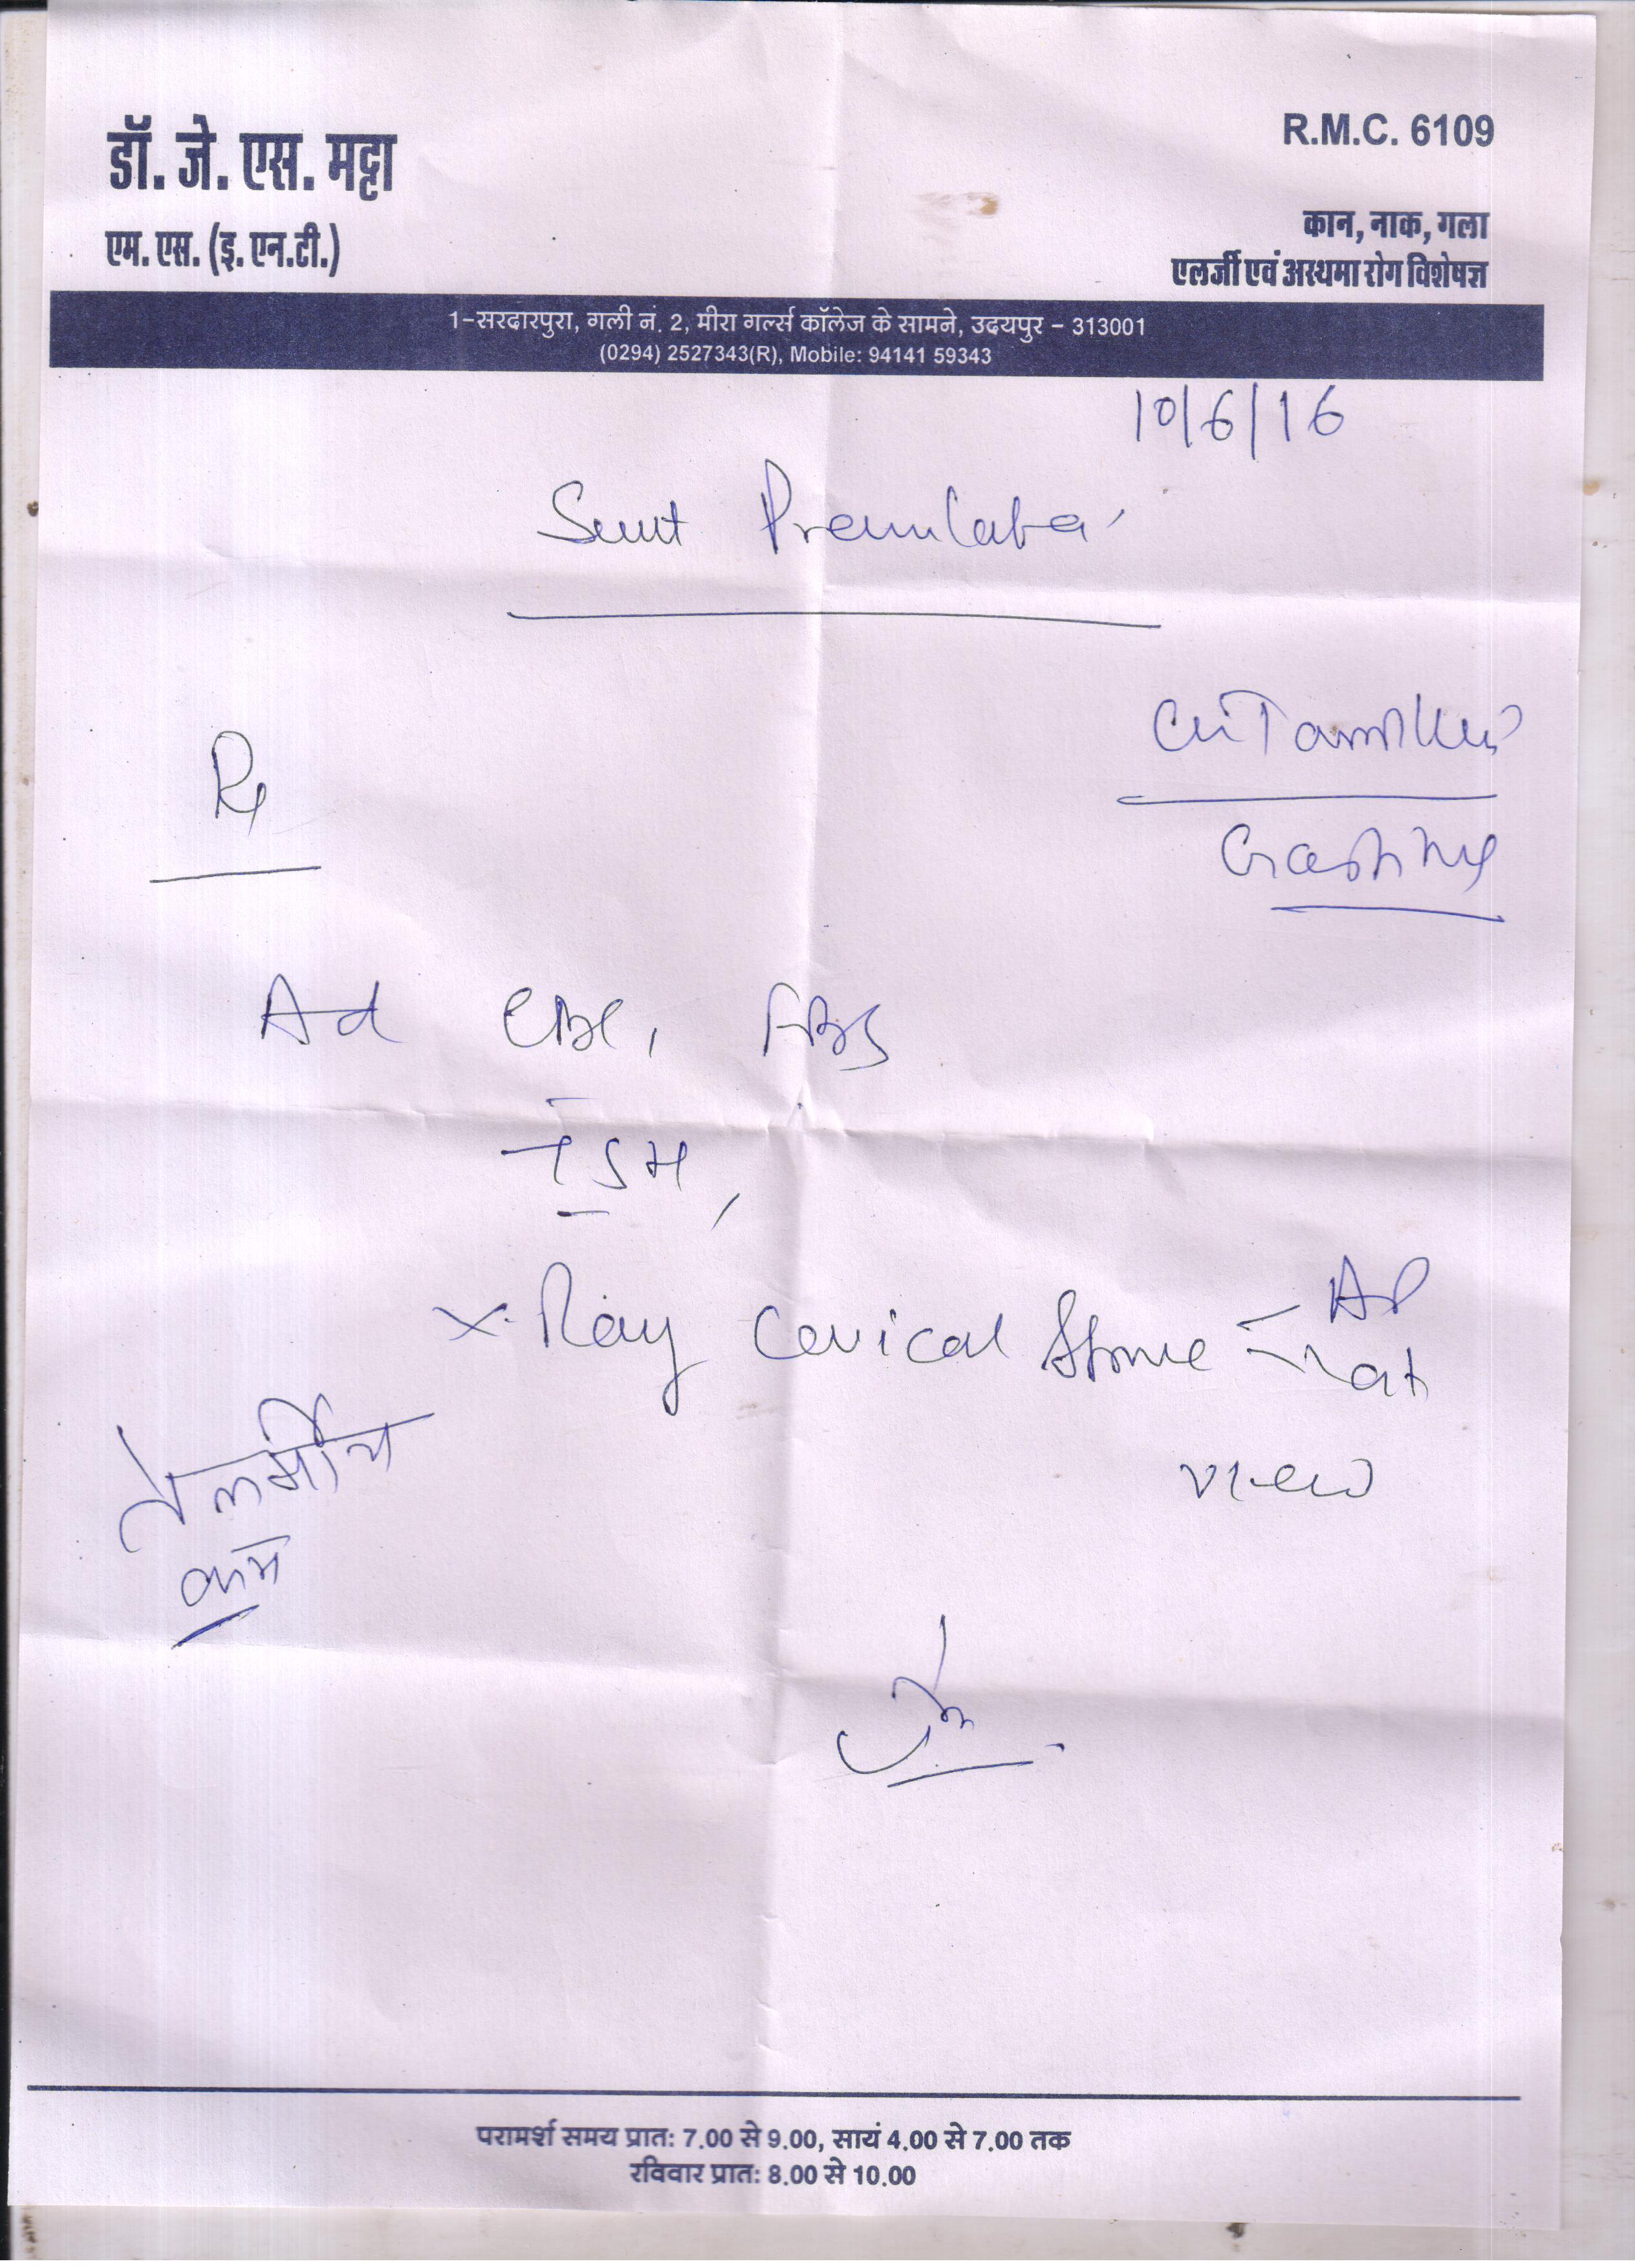 डॉ. जे. एस. मट्टा
एम. एस. (इ. एन.टी.)
R.M.C. 6109
कान, नाक, गला
एलर्जी एवं अस्थमा रोग विशेषज्ञ
1-सरदारपुरा, गली नं. 2, मीरा गर्ल्स कॉलेज के सामने, उदयपुर - 313001
(0294) 2527343(R), Mobile: 94141 59343
10/6/16
Smt Premlata
Rx
Ad CBC, FBS
TSH,
X-Ray Cervical Spine AP
Lat
view
कम
परामर्श समय प्रातः 7.00 से 9.00, सायं 4.00 से 7.00 तक
रविवार प्रातः 8.00 से 10.00